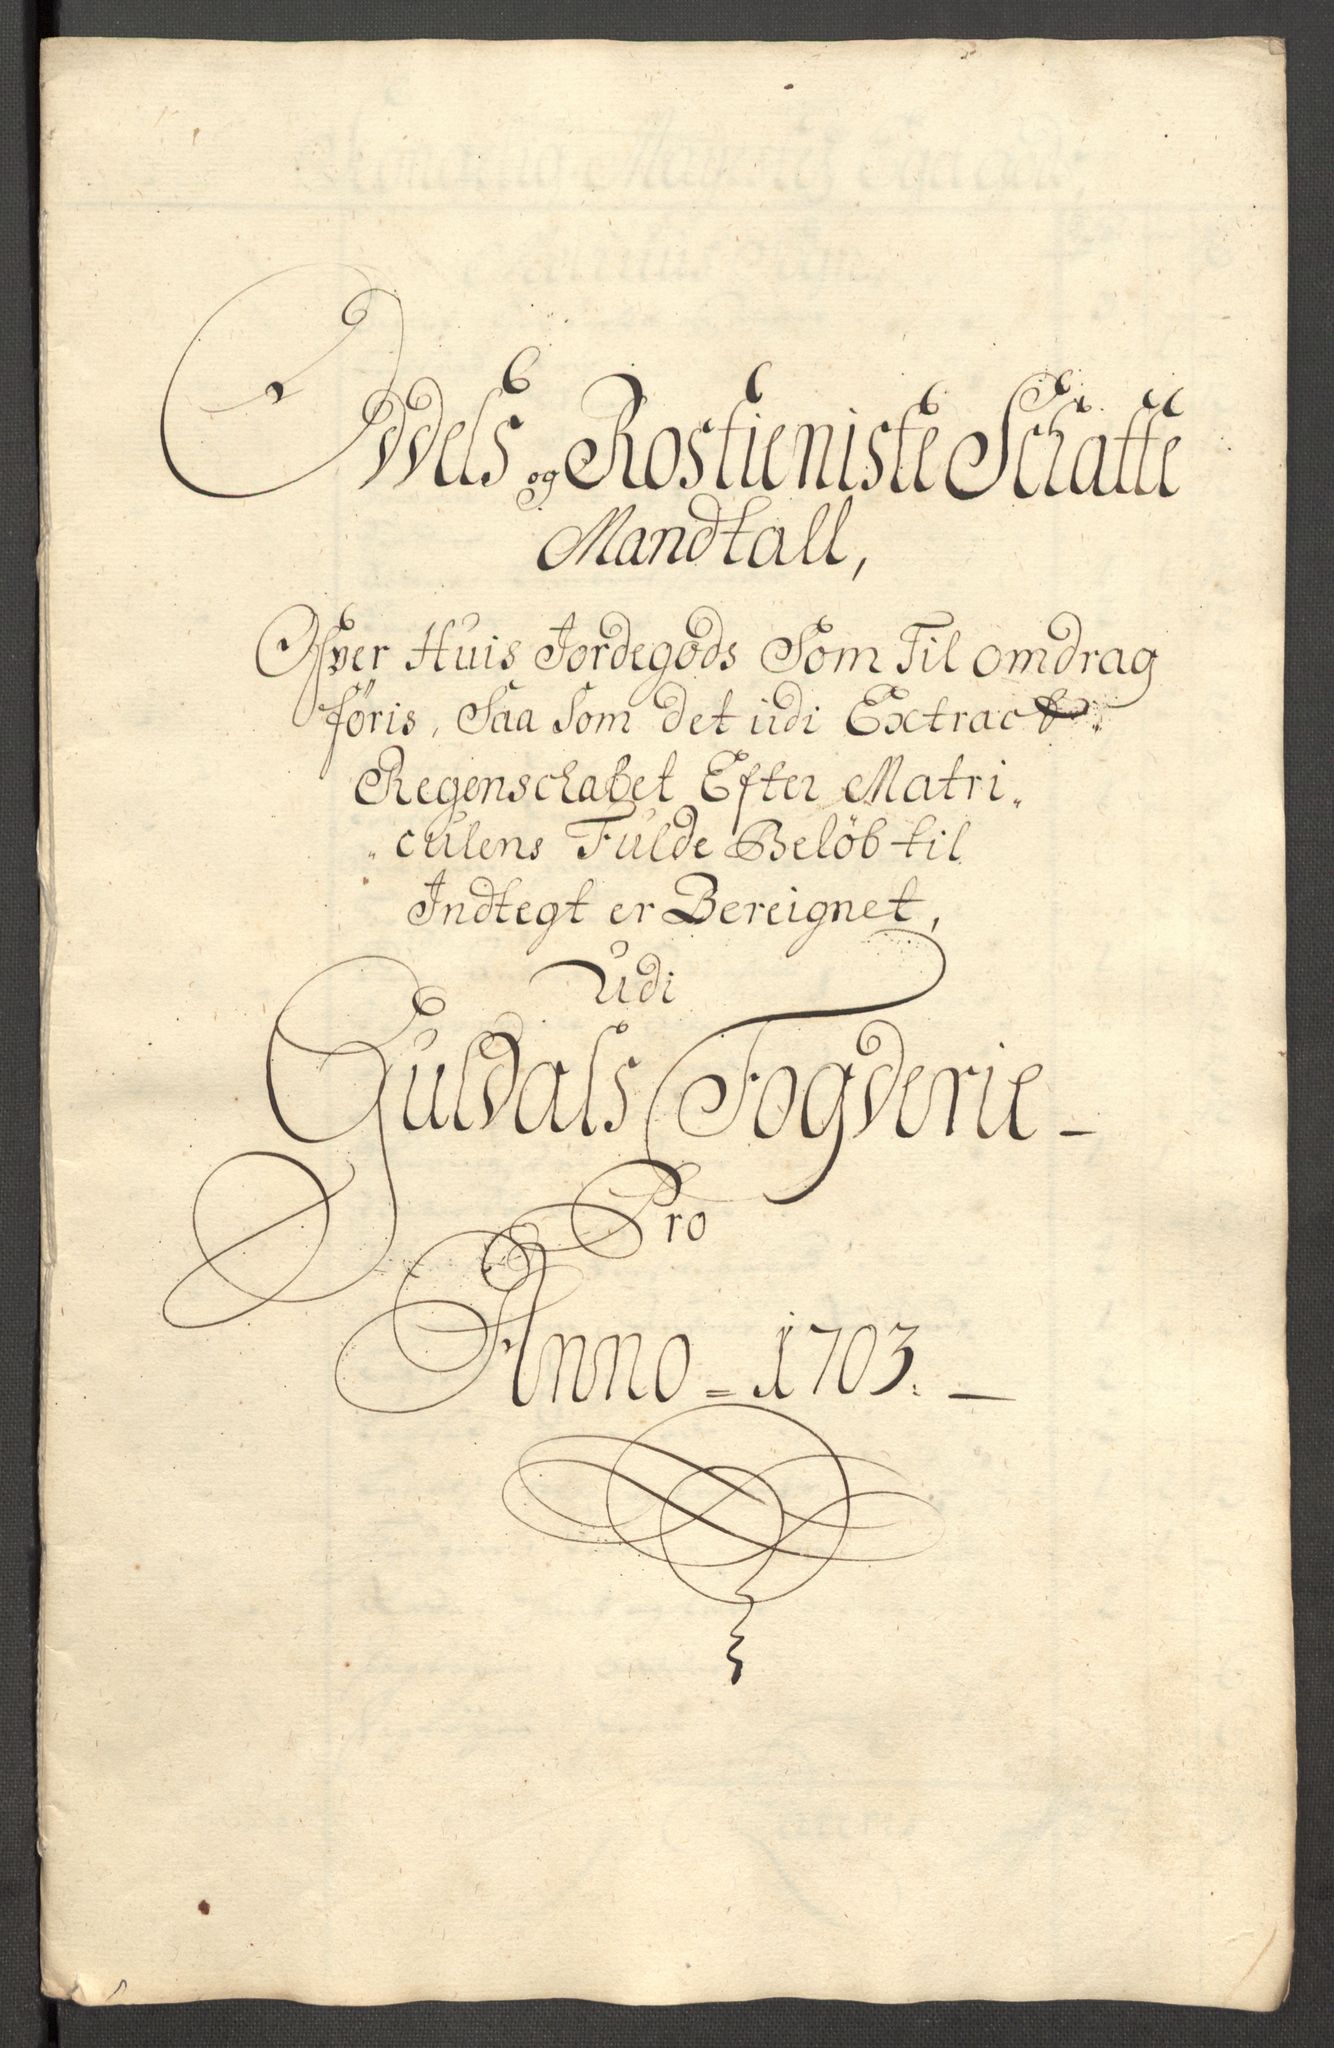 Oddels og Rostieniste Schatte
Mandtall,
Ofver Huis Jordegods Som Til omdrag
föris, Saa Som det udi Extract
Regenschabet Efter Matri„
„culens Fulde Belöb til
Indtegt er Bereignet,
Udi
Guldals Fogderie –
Pro
Anno = 1703. –